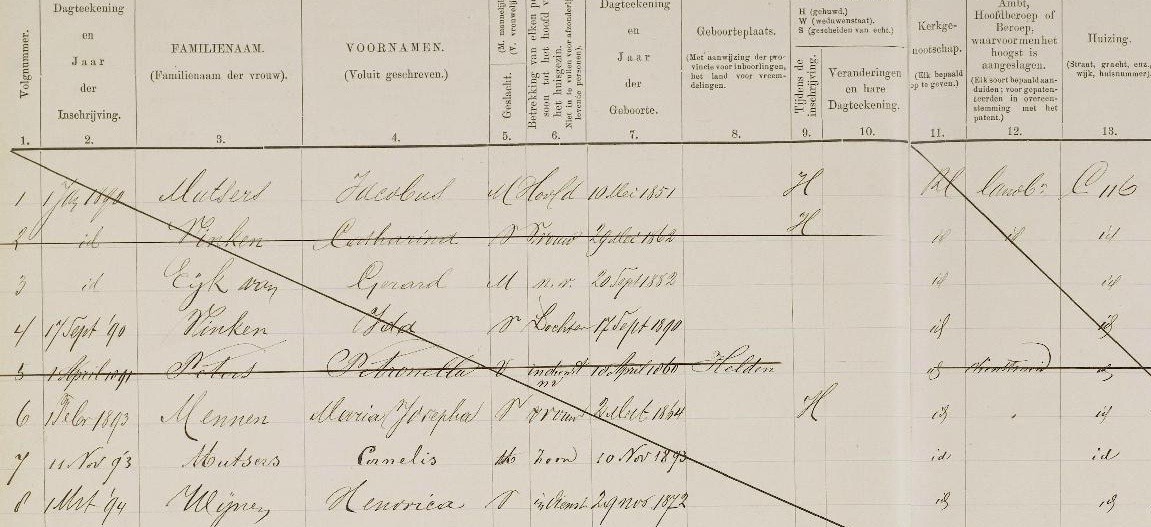 Volgnummer.
Dagteekening
en
Jaar
der
Inschrijving.
FAMILIENAAM.
(Familienaam der vrouw).
VOORNAMEN.
(Voluit geschreven.)
Geslacht.
(M. mannelijk
(V. vrouwelijk
Betrekking van elken per
soon tot het hoofd v
het huisgezin.
Niet in te vullen voor afzonderlij
levende personen).
Dagteekening
en
Jaar
der
Geboorte.
Geboorteplaats.
(Met aanwijzing der pro-
vincie voor inboorlingen,
het land voor vreem-
delingen.
H (gehuwd.)
W (weduwenstaat).
S (gescheiden van echt.)
Tijdens de
inschrijving.
Veranderingen
en hare
Dagteekening.
Kerkge-
nootschap.
(Elk bepaald
op te geven.)
Ambt,
Hoofdberoep of
Beroep,
waarvoor men het
hoogst is
aangeslagen.
(Elk soort bepaald aan-
duiden; voor gepaten-
teerden in overeen-
stemming met het
patent.)
Huizing.
(Straat, gracht, enz.,
wijk, huisnummer).
1. 2. 3. 4. 5. 6. 7. 8. 9. 10. 11. 12. 13.
1 1 1890 Mutsers Jacobus M Hoofd 19 Mei 1851 H RK C 116
2 id Vinken Catharina V Vrouw 29 Mei 1862 H id id id
3 id Eijk van Gerard M n.v. 20 Sept 1882 id id
4 17 Sept '90 Vinken Ida V Dochter 17 Sept 1890 id id
5 1 April 1891 Peters Petronella V in dienst 18 April 1860 Helden id id
6 1 Febr 1893 Mennen Maria Josepha V vrouw 2 1864 H id id
7 11 Nov 93 Mutsers Cornelis zoon 10 Nov 1893 id id
8 1 Mrt '94 Wijnen Henorica V in dienst 29 nov 1872 id id